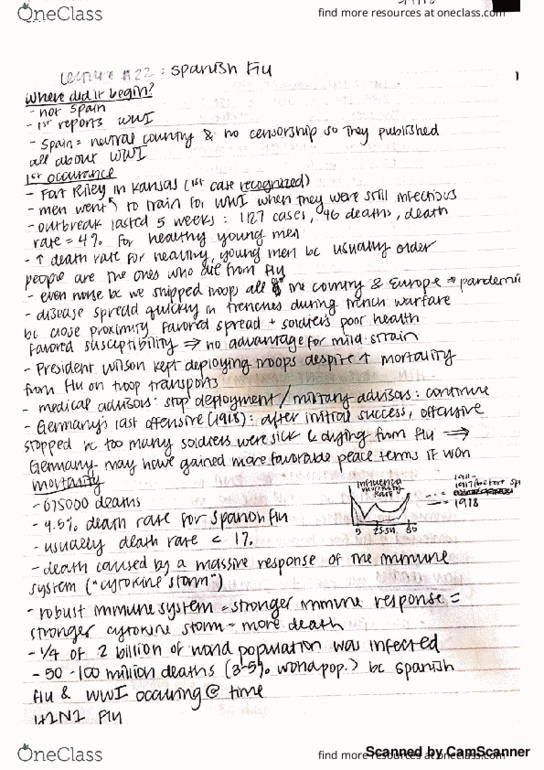 OneClass
find more resources at oneclass.com
Lecture #22: Spanish Flu
1
Where did it begin?
- not Spain
- 1st reports WWI
- Spain = neutral country & no censorship so they published
all about WWI
1st occurance
- Fort Riley in Kansas (1st case recognized)
- men went to train for WWI when they were still infectious
- outbreak lasted 5 weeks: 1127 cases, 46 deaths, death
rate = 4% for healthy young men
- ↑ death rate for healthy, young men bc usually older
people are the ones who die from flu
- even worse bc we shipped troops all the country & Europe ⇒ pandemic
- disease spread quickly in trenches during trench warfare
bc close proximity favored spread + soldiers poor health
favored susceptibility ⇒ no advantage for mild strain
- President Wilson kept deploying troops despite ↑ mortality
from flu on troop transports
- medical advisors: stop deployment / military advisors: continue
- Germany's last offensive (1918): after initial success, offensive
stopped bc too many soldiers were sick & dying from flu ⇒
Germany may have gained more favorable peace terms if won
mortality
- 675000 deaths
- 4.5% death rate for Spanish flu
- usually death rate < 1%
influenza
1918
- death caused by a massive response of the immune
system ("cytokine storm")
- robust immune system = stronger immune response =
stronger cytokine storm = more death
- 1/4 of 2 billion of world population was infected
- 50-100 million deaths (3-5% world pop.) bc Spanish
flu & WWI occuring @ time
H2N2 Flu
OneClass
find more resources at oneclass.com
Scanned by CamScanner